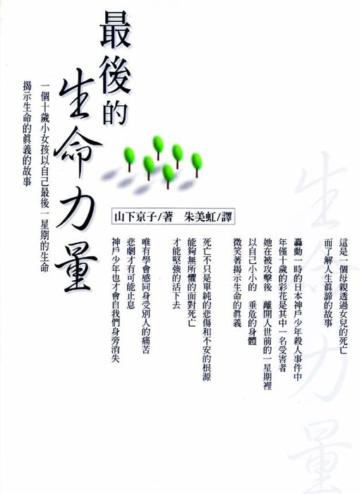 最後的
生命力量
一個十歲小女孩以自己最後一星期的生命
揭示生命的真義的故事
山下京子/著 朱美虹/譯
生命力量
這是一個母親透過女兒的死亡
而了解人生真諦的故事
轟動一時的日本神戶少年殺人事件中
年僅十歲的彩花是其中一名受害者
她在被攻擊後 離開人世前的一星期裡
以自己小小的 垂危的身體
微笑著揭示生命的真義
死亡不只是單純的悲傷和不安的根源
能夠無所懼的面對死亡
才能堅強的活下去
唯有學會感同身受別人的痛苦
悲劇才有可能止息
神戶少年也才會自我們身旁消失